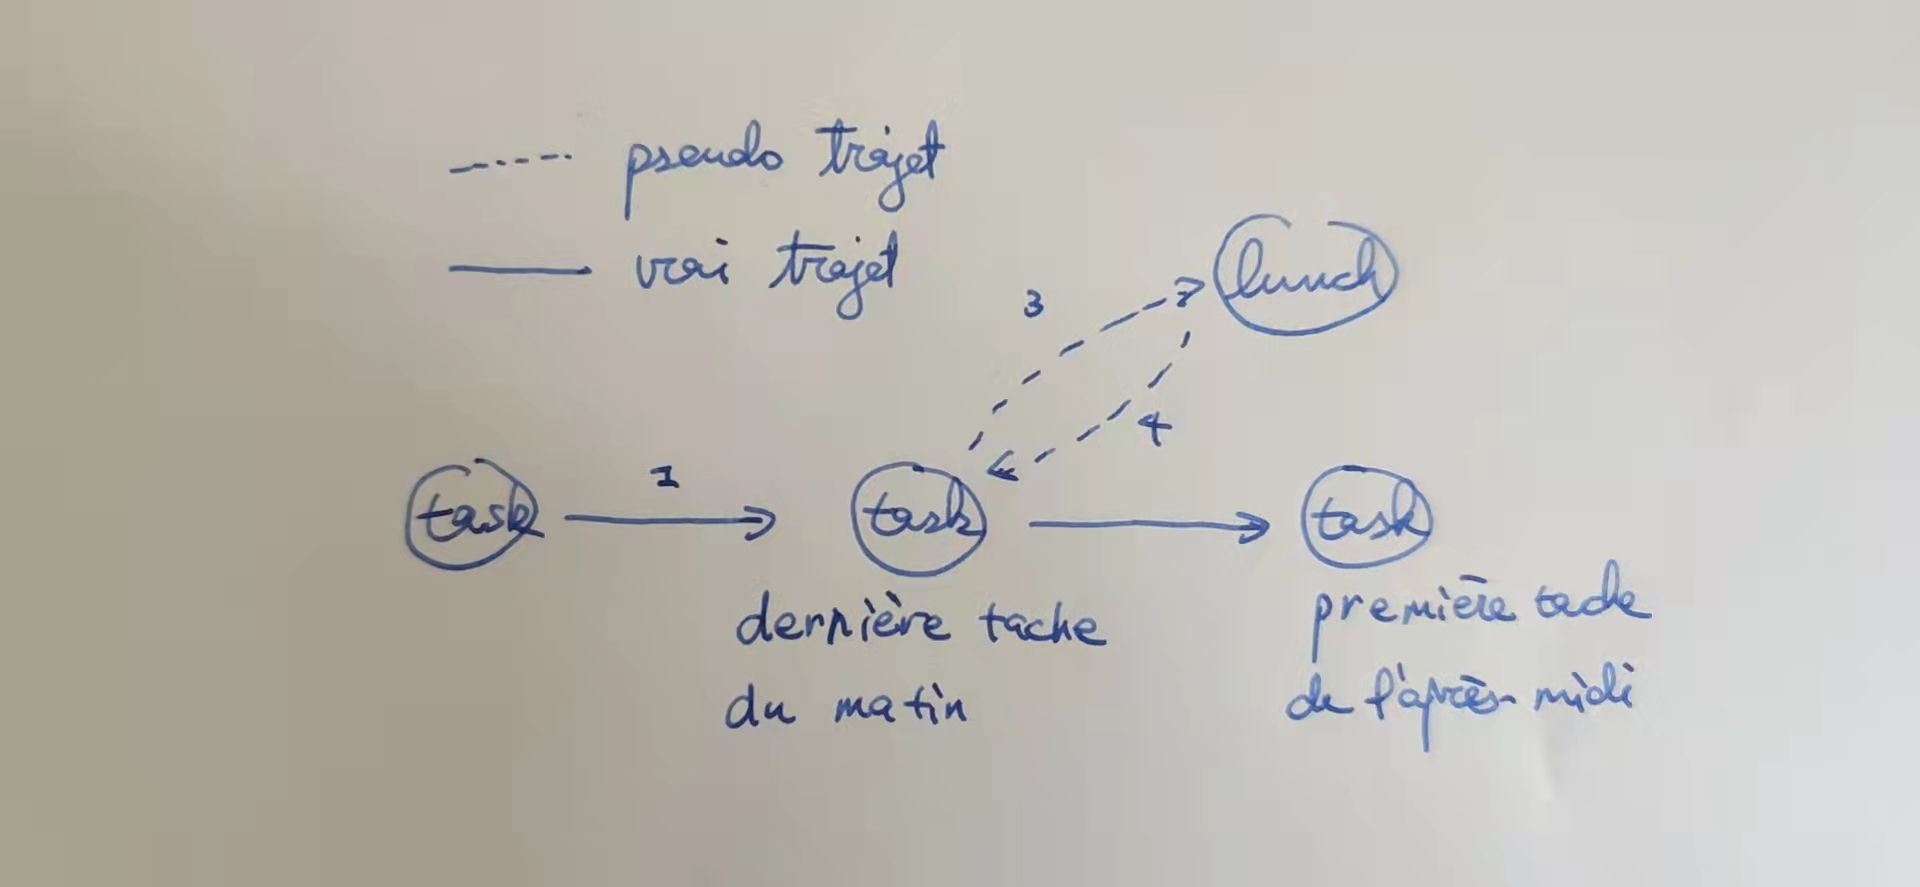 pseudo trajet
vrai trajet
lunch
3
4
1
task
task
task
dernière tache
du matin
première tache
de l'après-midi